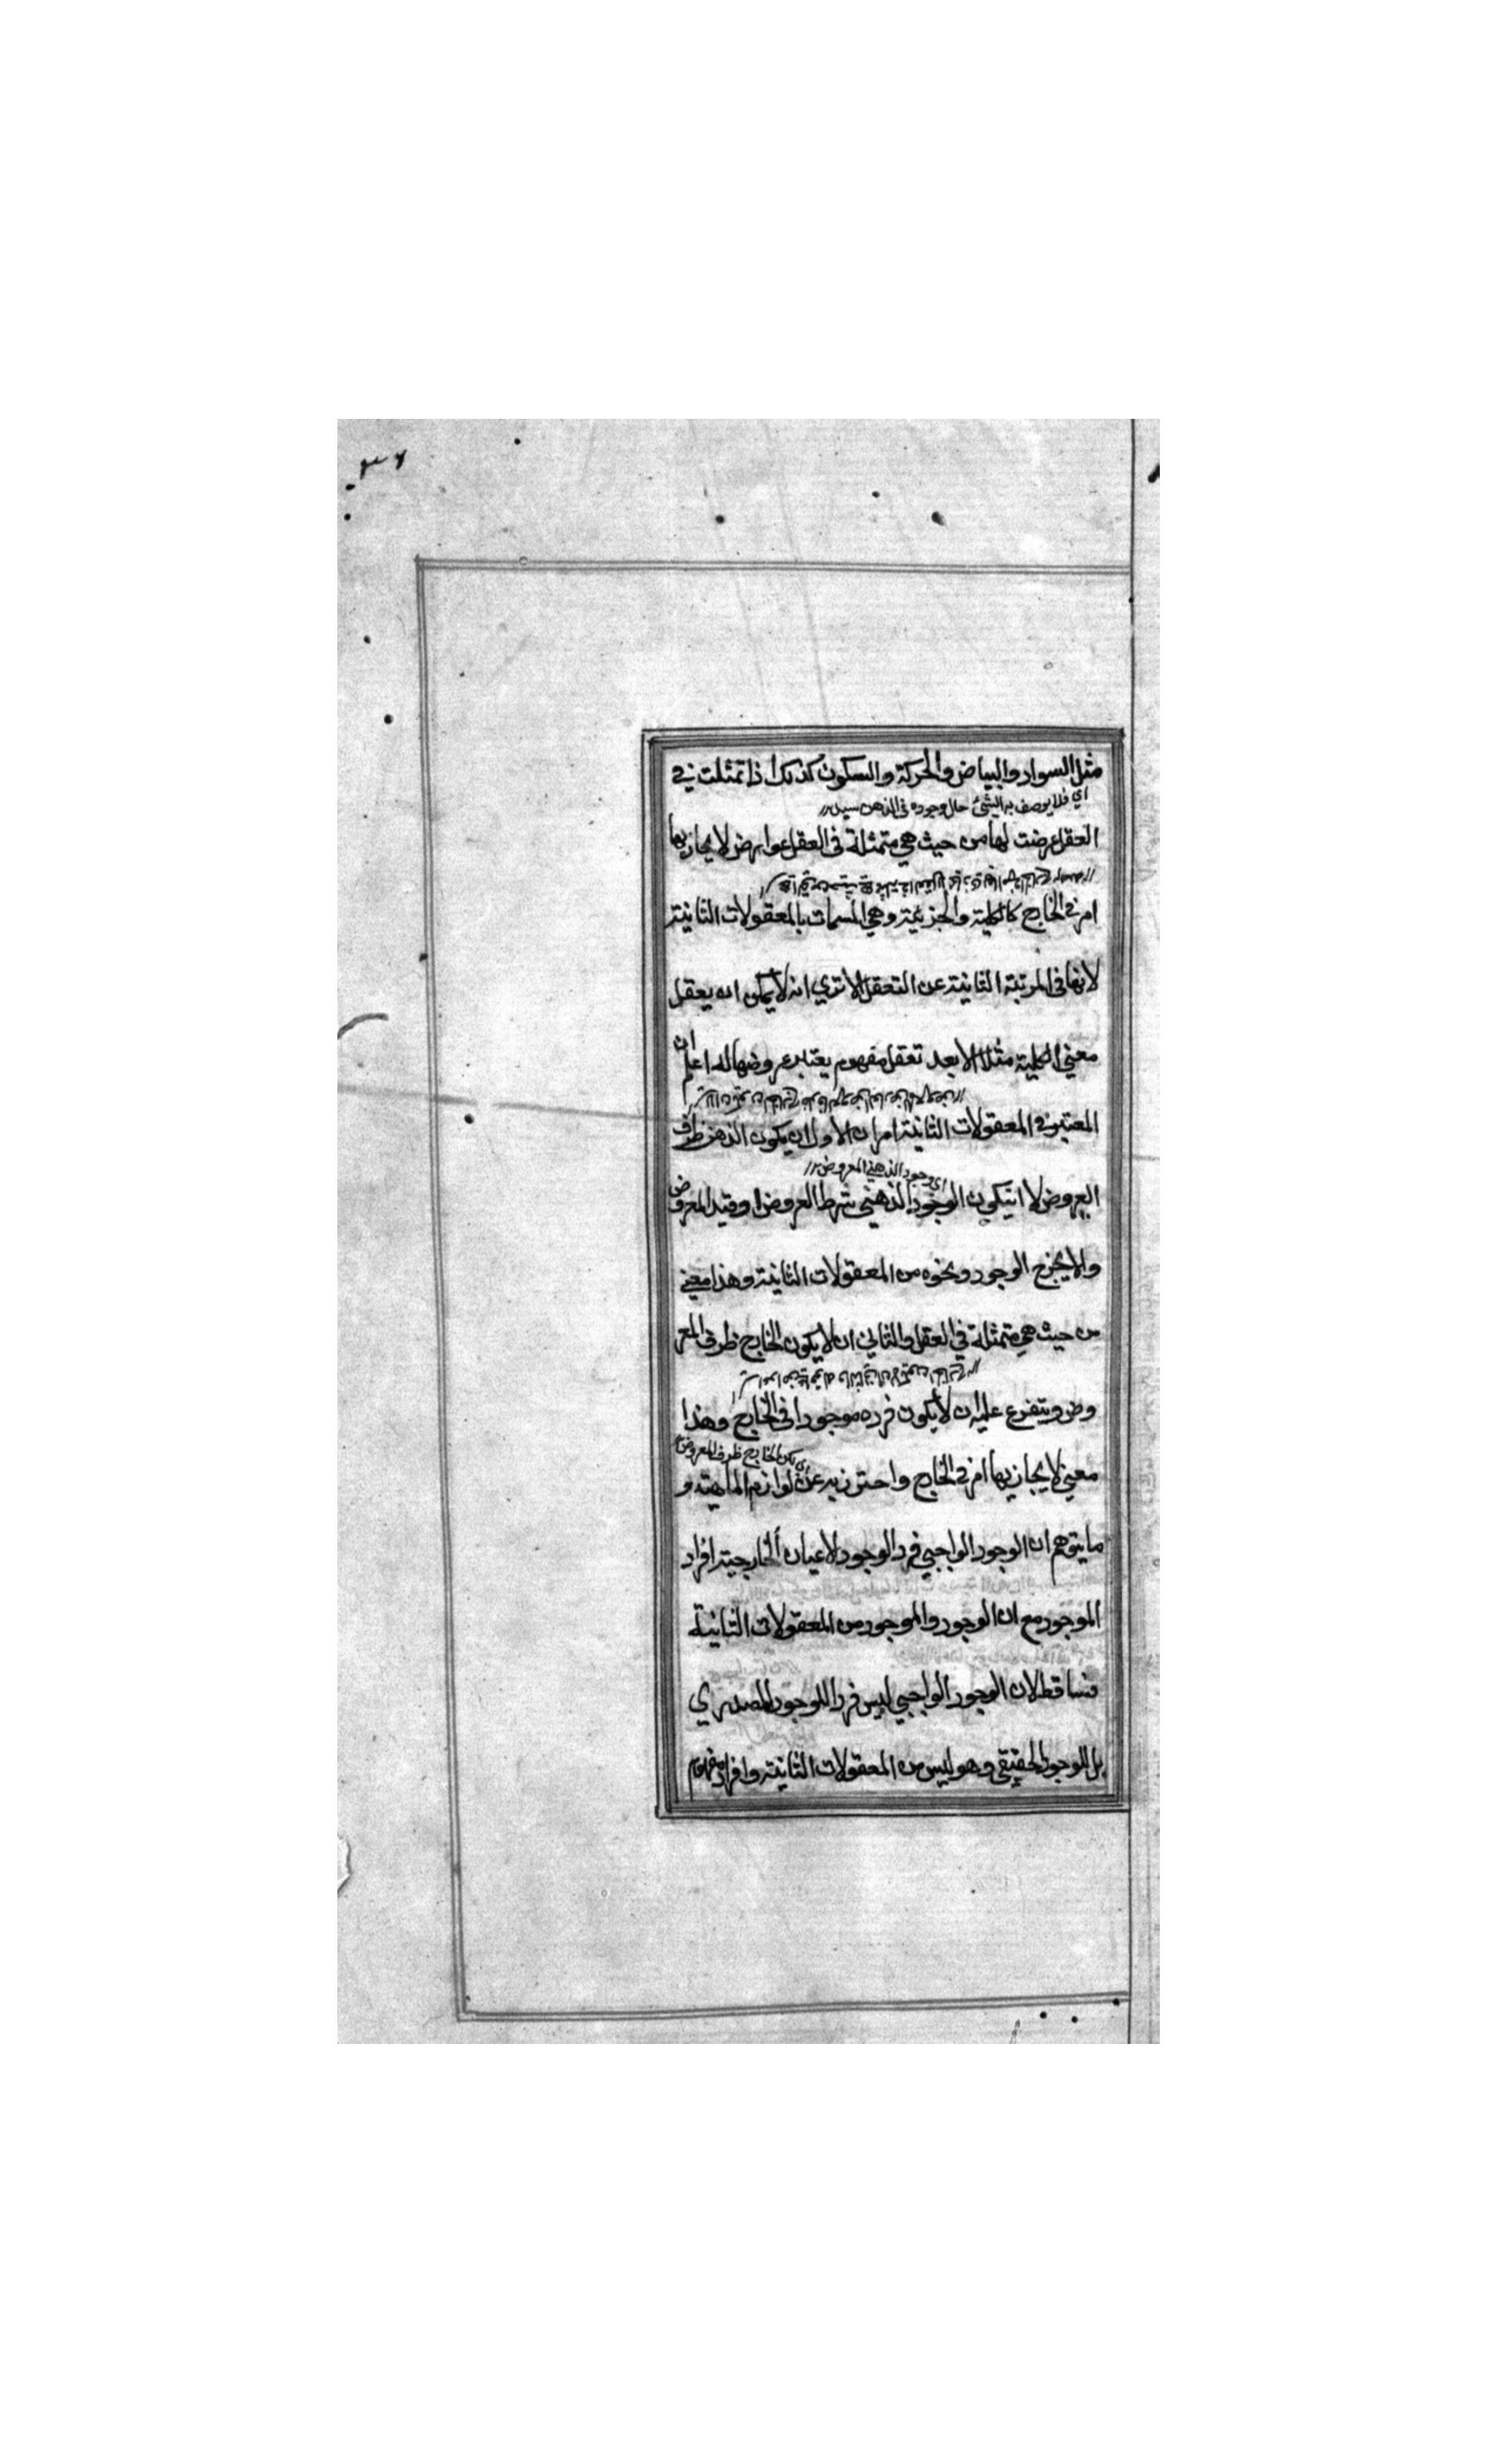 ٣٦
مثل السواد والبياض والحركة والسكون كذلك اذا تمثلت في
اي فلا يوصف به الشئ حال وجوده في الذهن سيد
العقل عرضت لها من حيث هي متمثلة في العقل عوارض لا يحاذيها
امر في الخارج كالكلية والجزئية وهي المسمات بالمعقولات الثانية
لانها في المرتبة الثانية عن التعقل الا تري انه لا يمكن ان يعقل
معني الكلية مثلا الا بعد تعقل مفهوم يعتبر عروضها له اعلم ان
المعتبر في المعقولات الثانية امران الاول ان يكون الذهن ظرف
اي وجود الذهني المعروض
العروض لا ان يكون الوجود الذهني شرط العروض او قيد المعروض
والا يخرج الوجود ونحوه من المعقولات الثانية وهذا معني
من حيث هي متمثلة في العقل والثاني ان لا يكون الخارج ظرف المعر
وض ويتفرع عليه ان لا يكون فرده موجودا في الخارج وهذا
الخارج ظرف المعروض
معني لا يحاذيها امر في الخارج واحترز به عن لوازم الماهية و
ما يتوهم ان الوجود الواجبي فرد الوجود لاعيان الخارجية افراد
الموجود مع ان الوجود والموجود من المعقولات الثانية
فساقط لان الوجود الواجبي ليس فردا للوجود المصدري
بل للوجود الحقيقي وهو ليس من المعقولات الثانية وافراد